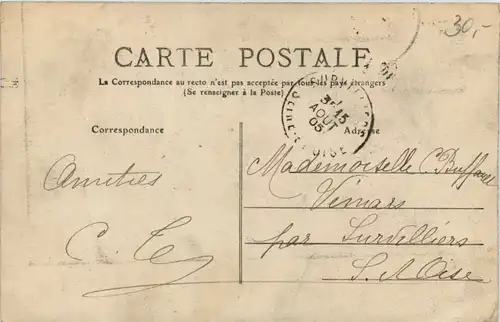 30,-
CARTE POSTALE
La Correspondance au recto n'est pas acceptée par tous les pays étrangers
(Se renseigner à la Poste)
3-15
AOUT
05
OISE
Correspondance
Adresse
Amitiés
Mademoiselle C. Buffard
Vémars
C. Te
par Survilliers
S. et Oise